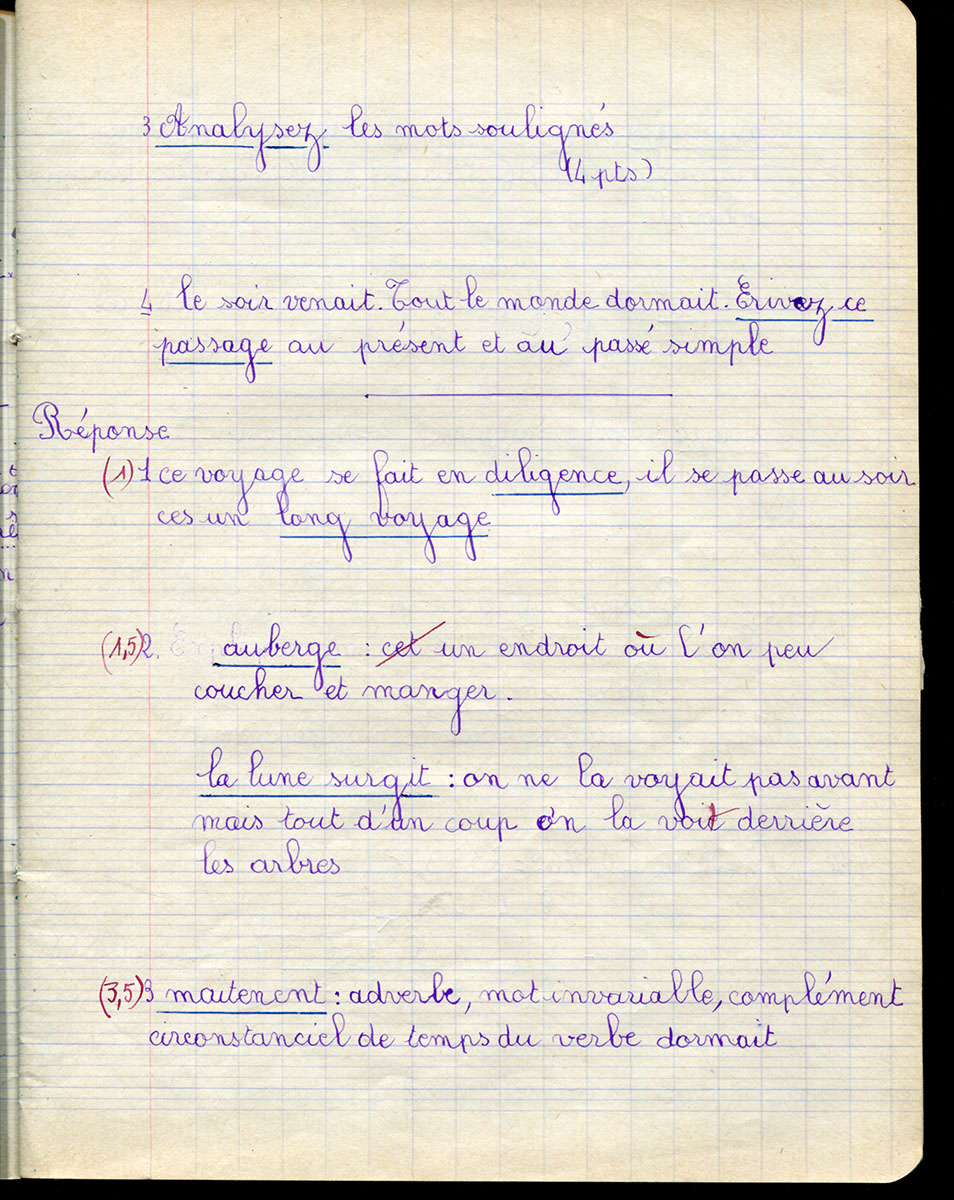 3 Analysez les mots soulignés
(4 pts)
4 le soir venait. Tout le monde dormait. Erivez ce
passage au présent et au passé simple
Réponse
(1) 1 ce voyage se fait en diligence, il se passe au soir
ces un long voyage
(1,5) 2. auberge : cet un endroit où l'on peu
coucher et manger.
la lune surgit : on ne la voyait pas avant
mais tout d'un coup on la voit derrière
les arbres
(3,5) 3 maitenent : adverbe, mot invariable, complément
circonstanciel de temps du verbe dormait